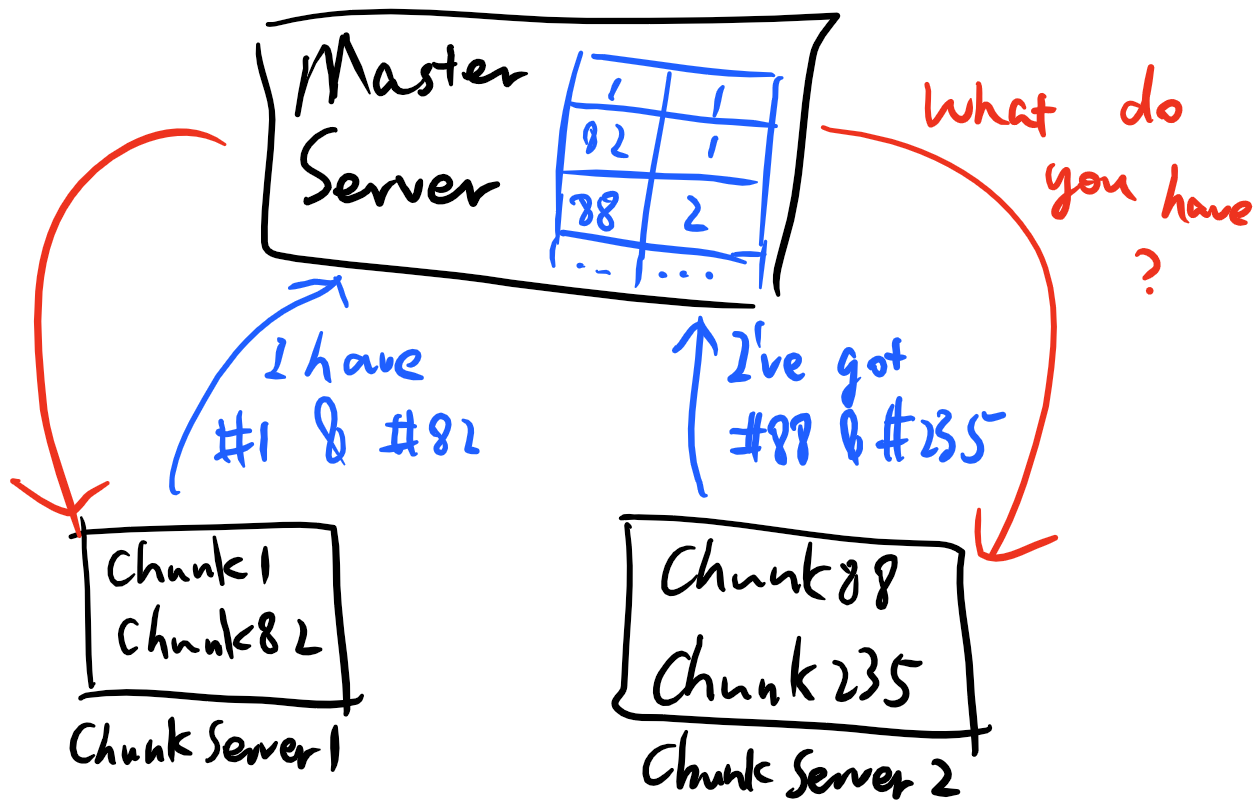 Master
Server
1 1
82 1
88 2
... ...
What do
you have
?
I have
#1 & #82
I've got
#88 & #235
Chunk1
Chunk82
Chunk Server1
Chunk88
Chunk235
Chunk Server2